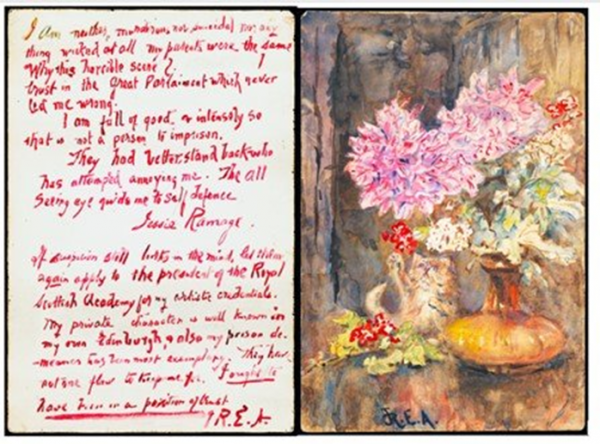 I Am neither, murderous, nor suicidal nor any
thing wicked at all my parents were the same
Why this horrible scene? I
trust in the Great Parliament which never
led me wrong.
I am full of good, & intensely so
that is not a person to imprison.
They had better stand back who
has attempted annoying me. The All
Seeing eye guide me to self defence
Jessie Ramage.
If suspicion still lurks in the mind, let them
again apply to the president of the Royal
Scottish Academy for my artistic credentials.
My private character is well known in
my own Edinburgh, & also my person de-
meanor has been most exemplary. They have
not one flaw to keep me for. I ought to
have been in a position of trust
R.E.A.
R.E.A.